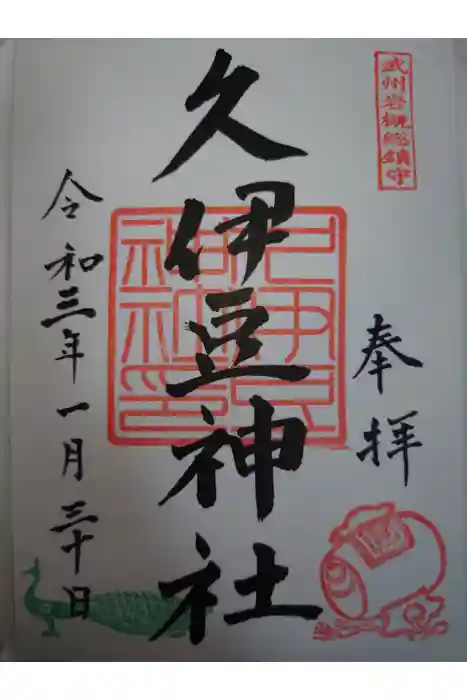 武州岩槻総鎮守
奉拝
久伊豆神社
令和三年一月三十日